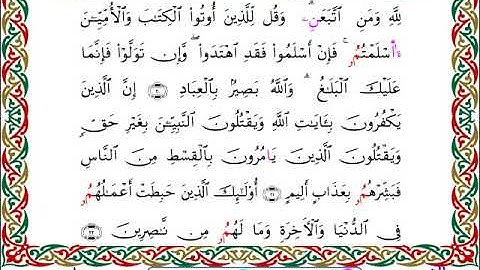 لِلَّهِ وَمَنِ اِتَّبَعَنِۦ وَقُل لِّلَّذِينَ أُوتُواْ الْكِتَٰبَ وَالْأُمِّيّـِۧنَ
ءَاَسْلَمْتُمُۥ فَإِنْ أَسْلَمُواْ فَقَدِ اِهْتَدَواْ وَّإِن تَوَلَّوْاْ فَإِنَّمَا
عَلَيْكَ الْبَلَٰغُ وَاللَّهُ بَصِيرُۢ بِالْعِبَادِ ٢٠ إِنَّ الَّذِينَ
يَكْفُرُونَ بِـَٔايَٰتِ اللَّهِ وَيَقْتُلُونَ النَّبِيّـِۧنَ بِغَيْرِ حَقٍّ
وَيَقْتُلُونَ الَّذِينَ يَامُرُونَ بِالْقِسْطِ مِنَ النَّاسِ
فَبَشِّرْهُمُۥ بِعَذَابٍ أَلِيمٍ ٢١ أُوْلَٰٓئِكَ الَّذِينَ حَبِطَتْ أَعْمَٰلُهُمُۥ
فِي الدُّنْيَا وَالْأٓخِرَةِ وَمَا لَهُمُۥ مِن نَّٰصِرِينَ ٢٢